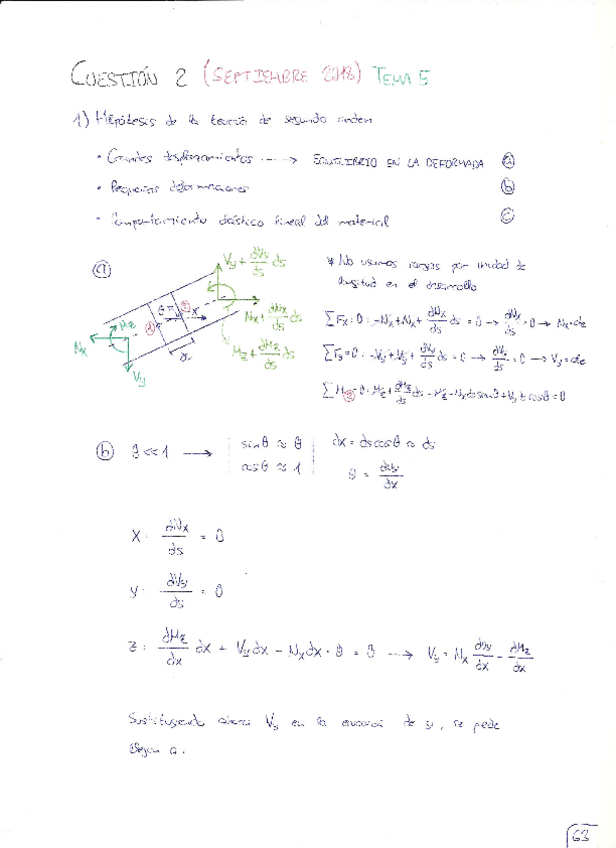 CUESTIÓN 2 (SEPTIEMBRE 2018) TEMA 5
1) Hipótesis de la teoría de segundo orden
• Grandes desplazamientos ----→ EQUILIBRIO EN LA DEFORMADA (a)
• Pequeñas deformaciones (b)
• Comportamiento elástico lineal del material (c)
(a)
V_y + dV_y/ds ds
N_x + dN_x/ds ds
M_z + dM_z/ds ds
N_x
M_z
V_y
θ
x
* No usamos cargas por unidad de
longitud en el desarrollo
∑F_x = 0: -N_x + N_x + dN_x/ds ds = 0 → dN_x/ds = 0 → N_x = cte
∑F_y = 0: -V_y + V_y + dV_y/ds ds = 0 → dV_y/ds = 0 → V_y = cte
∑M_② = 0: M_z + dM_z/ds ds - M_z - N_x ds senθ + V_y ds cosθ = 0
(b) θ << 1 → sinθ ≈ θ dx = ds cosθ ≈ ds
cosθ ≈ 1 θ = du_y/dx
X: dN_x/ds = 0
Y: dV_y/ds = 0
Z: dM_z/dx dx + V_y dx - N_x dx · θ = 0 ---→ V_y = N_x du_y/dx - dM_z/dx
Sustituyendo ahora V_y en la ecuación de y, se puede
llegar a:
63